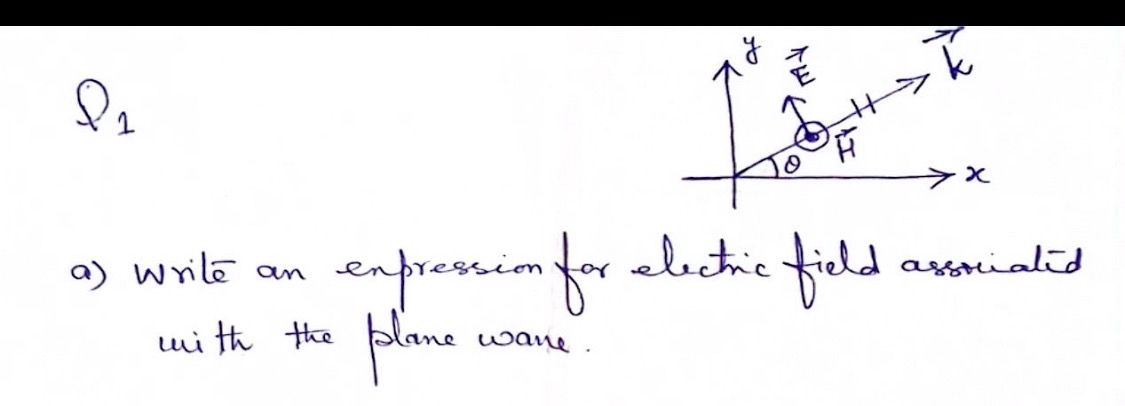 P1
y
E
k
H
θ
x
a) Write an expression for electric field associated
with the plane wave.